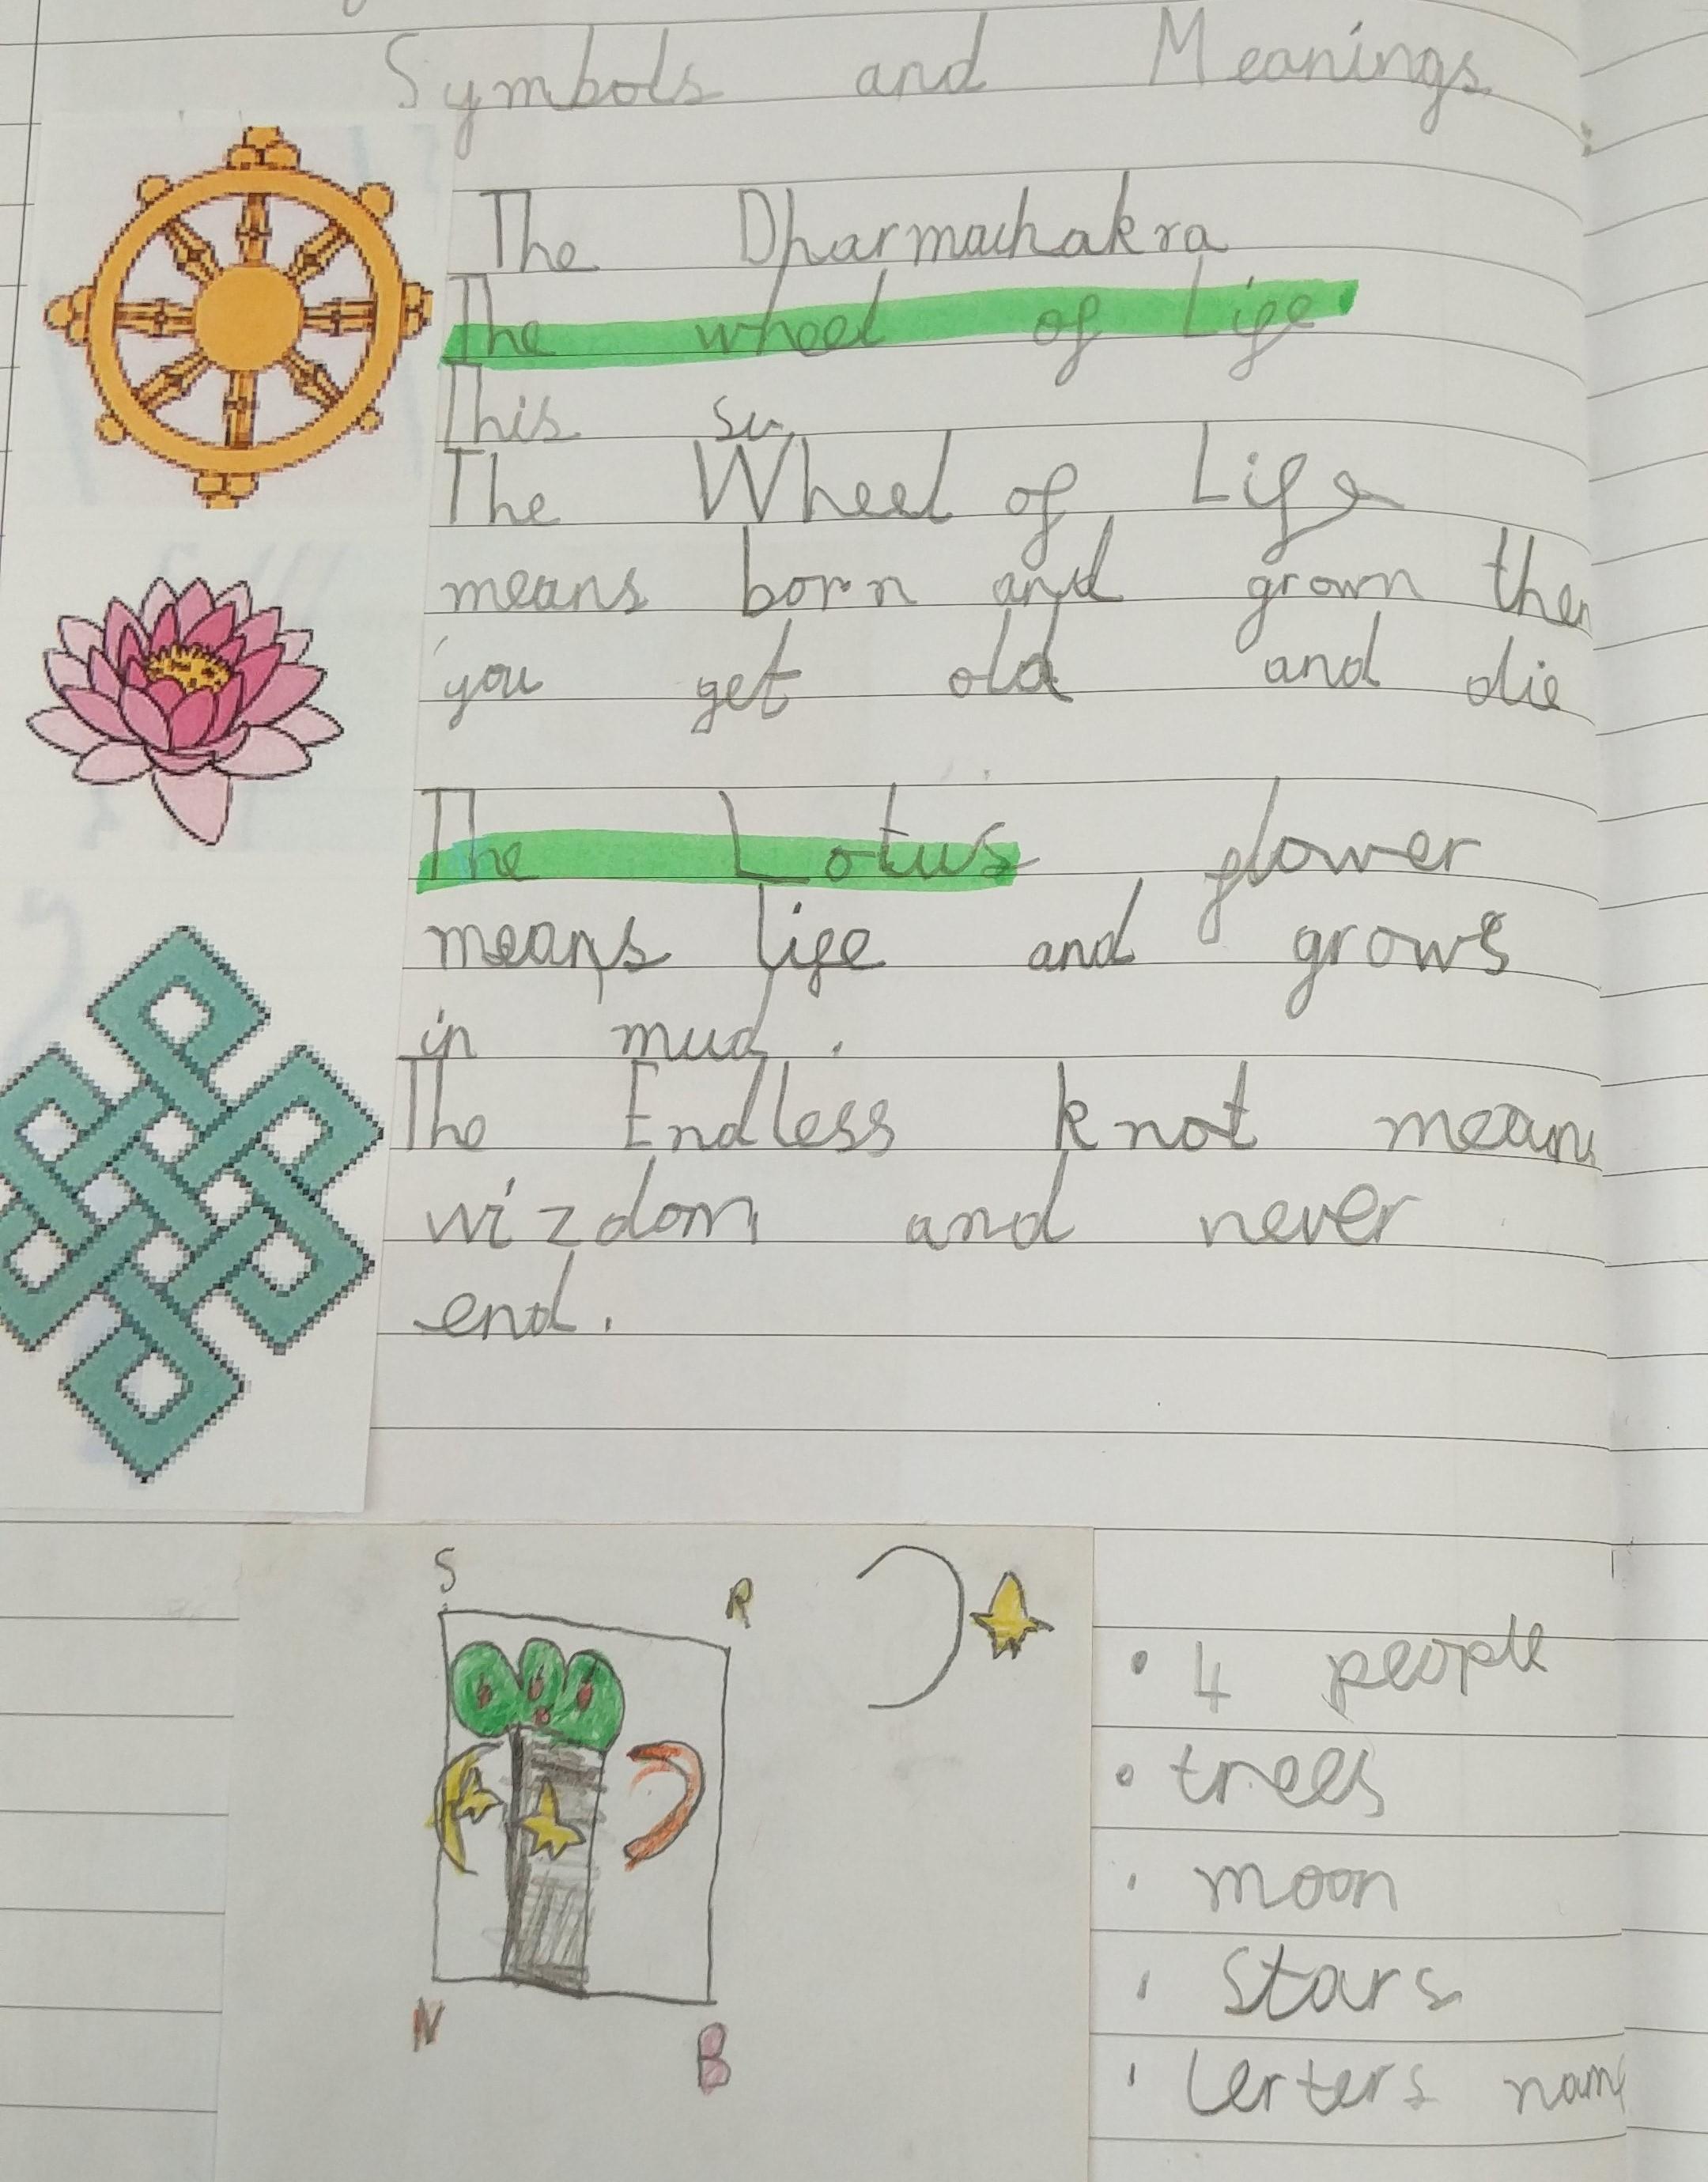 Symbols and Meanings
The Dharmachakra
The wheel of Life
This su
The Wheel of Life
means born and grown then
you get old and die
The Lotus flower
means life and grows
in mud.
The Endless knot means
wizdom and never
end.
S
R
N
B
• 4 people
• trees
• moon
• stars
• lerters name